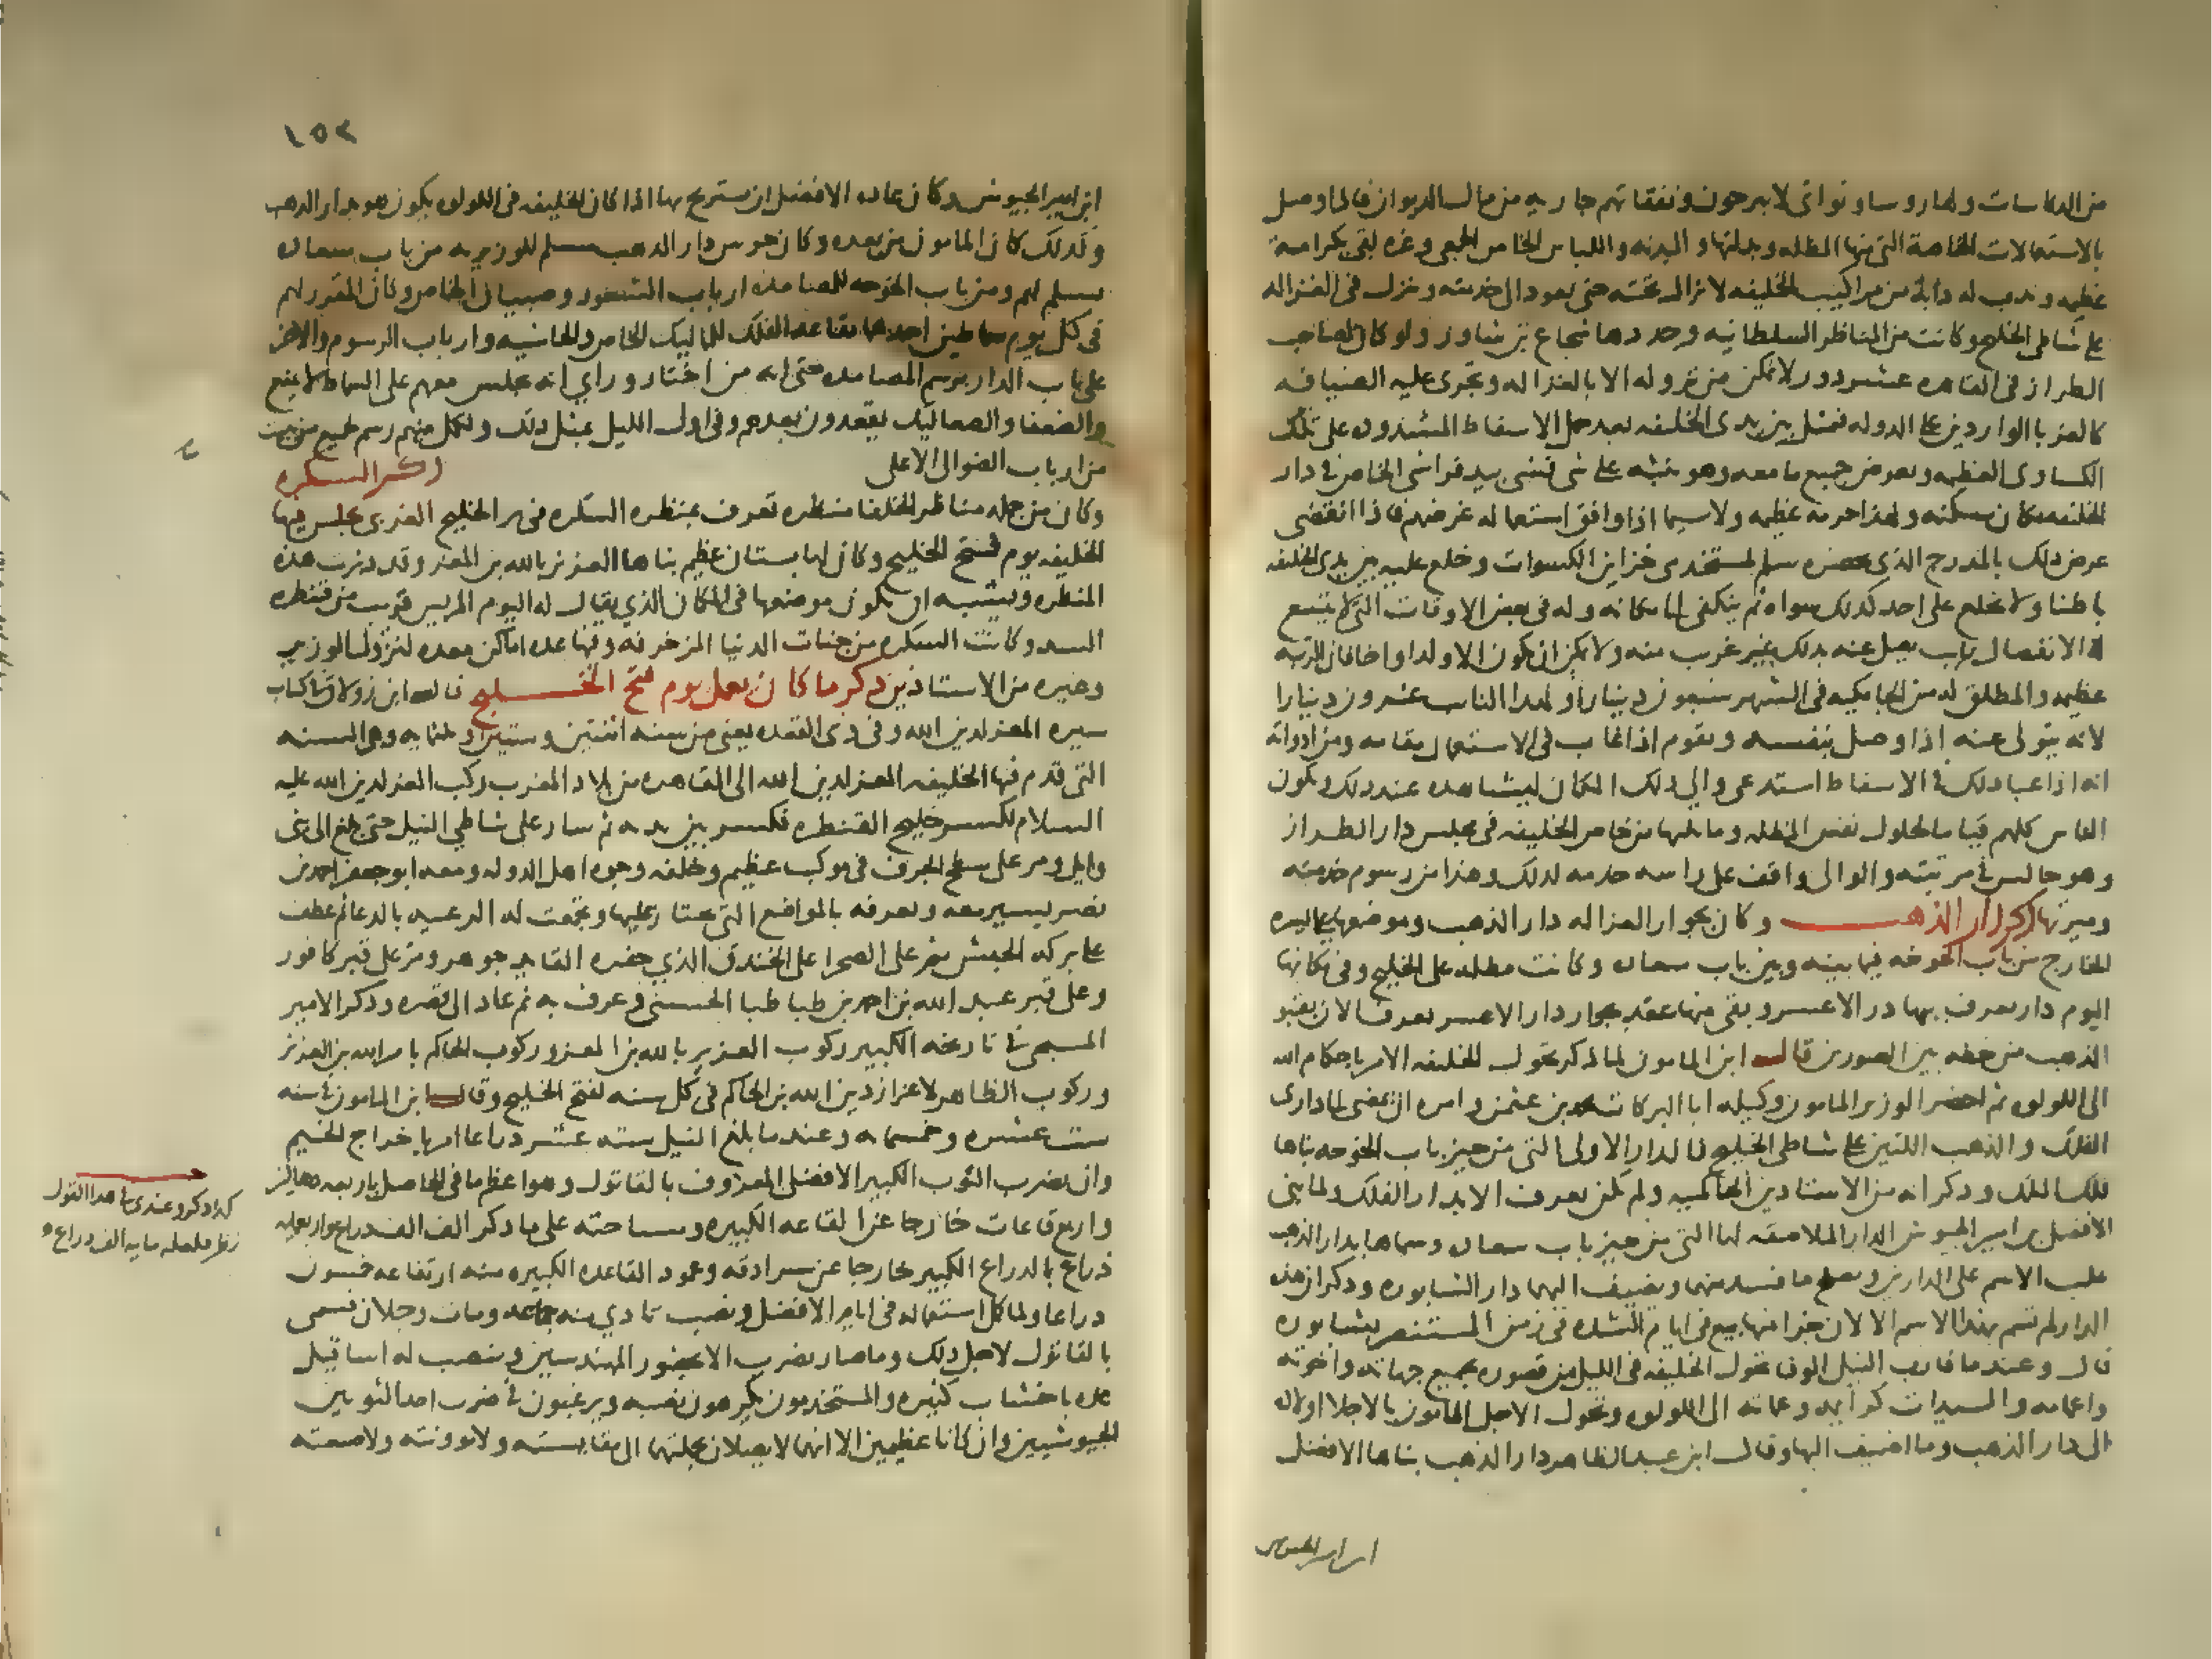 من الدكاسات ولها روسا ونواتى لا يبرحون ونفقاتهم جاريه من مال الديوان فاذا وصل
بالاستعمالات الخاصة التى منها المظله وبدلتها والبدنه واللباس الخاص الجمعى وغيره لقى بكرامة
عظيمه وندب له دابة من مراكيب الخليفه لا تزال تحته حتى يعود الى خدمته وينزل فى الغزاله
على شاطى الخليج وكانت من المناظر السلطانيه وجددها شجاع بن شاور ولو كان لصاحب
الطراز فى القاهره عشر دور لا يمكن من نزوله الا بالغزاله وتجرى عليه الضيافه
كالغربا الواردين على الدوله فيمثل بين يدى الخليفه بعد حمل الاسفاط المشدوده على تلك
الكساوى العظيمه ويعرض جميع ما معه وهو ينبه على شى فشى بيد فراشى الخاص فى دار
الخليفه مكان سكنه ولهذا حرمه عظيمه ولا سيما اذا وافق استعماله غرضهم فاذا انقضى
عرض ذلك بالمدرج الذى يحضره سلم لمستخدمى خزاين الكسوات وخلع عليه بين يدى الخليفه
باطنا ولا يخلع على احد كذلك سواه ثم ينكفى الى مكانه وله فى بعض الاوقات التى لا يتسع
له الانفصال نايب يصل عنه بذلك غير غريب منه ولا يمكن ان يكون الا ولدا او اخا فان الرتبه
عظيمه والمطلق له من الجامكيه فى الشهر سبعون دينارا ولهذا النايب عشرون دينارا
لانه يتولى عنه اذا وصل بنفسه ويقوم اذا غاب فى الاستعمال مقامه ومن ادواته
انه اذا عبا ذلك فى الاسفاط استدعى والى ذلك المكان ليشاهده عند ذلك ويكون
الناس كلهم قياما لحلول نفس المظله وما يليها من خاص الخليفه فى مجلس دار الطراز
وهو جالس فى مرتبته والوالى واقف على راسه خدمه لذلك وهذا من رسوم خدمته
وميزتها ذكر دار الذهب وكان بجوار الغزاله دار الذهب وموضعها على يسره
الخارج من باب الخوخه فيما بينه وبين باب سعاده وكانت مطله على الخليج وفى مكانها
اليوم دار تعرف ببهادر الاعسر وبقى منها عقد بجوار دار الاعسر يعرف الان بقبو
الذهب من خطه بين السورين قال ابن المامون لما ذكر تحول الخليفه الامر باحكام الله
الى اللولوه ثم احضر الوزير المامون وكيله ابا البركات محمد بن عثمن وامره ان يمضى الى دارى
الفلك والذهب اللتين على شاطى الخليج فالدار الاولى التى من حيز باب الخوخه بناها
فلك الملك وذكر انه من الاستاذين الحاكميه ولم تكن تعرف الا بدار الفلك ولما بنى
الافضل بن امير الجيوش الدار الملاصقه لها التى من حيز باب سعاده وسماها بدار الذهب
غلب الاسم على الدارين ويصلح ما فسد منها ويضيف اليهما دار الشابوره وذكر ان هذه
الدار لم تسم بهذا الاسم الا لان جزا منها بيع فى ايام الشده فى زمن المستنصر بشابوره
قال وعند ما قارب النيل الوفا تحول الخليفه فى الليل من قصوره بجميع جهاته واخوته
واعمامه والسيدات كرايمه وعماته الى اللولوه وتحول الاجل المامون بالاجلا اولاده
الى دار الذهب وما اضيف اليها وقال ابن عبد الظاهر دار الذهب بناها الافضل
ابن امير الجيوش
١٥٢
ابن امير الجيوش وكان عاده الافضل ان يستريح بها اذا كان الخليفه فى اللولوه يكون هو بدار الذهب
وكذلك كان المامون من بعده وكان حرس دار الذهب يسلم للوزيريه من باب سعاده
يسلم لهم ومن باب الخوخه للمصامده ارباب الشعور وصبيان الخاص وكان المقرر لهم
فى كل يوم سماطين احدهما بقاعه الفلك للمماليك الخاص والحاشيه وارباب الرسوم والاخر
على باب الدار برسم المصامده حتى انه من اختار وراى انه يجلس معهم على السماط لا يمنع
والضعفا والصعاليك يقعدون بعدهم وفى اول الليل بمثل ذلك ولكل منهم رسم لجميع من يبيت
من ارباب الضو الى الاعلى ذكر السكره
وكان من جمله مناظر الخلفا منظره تعرف بمنظره السكره فى بر الخليج الغربى يجلس فيها
الخليفه يوم فتح الخليج وكان لها بستان عظيم بناها العزيز بالله بن المعز وقد دثرت هذه
المنظره ويشبه ان يكون موضعها فى المكان الذي يقال له اليوم المريس قريب من قنطره
السد وكانت السكره من جنات الدنيا المزخرفه وفيها عده اماكن معده لنزول الوزير
وغيره من الاستاذين ذكر ما كان يعمل يوم فتح الخليج قال ابن زولاق فى كتاب
سيره المعز لدين الله وفى ذى القعده يعنى من سنه اثنتين وستين وثلثمايه وهى السنه
التى قدم فيها الخليفه المعز لدين الله الى القاهره من بلاد المغرب ركب المعز لدين الله عليه
السلام لكسر خليج القنطره فكسر بين يديه ثم سار على شاطي النيل حتى بلغ الى بنى
وايل ومر على سطح الجرف فى موكب عظيم وخلفه وجوه اهل الدوله ومعه ابو جعفر احمد بن
نصر يسير معه ويعرفه بالمواضع التى يجتاز عليها وتجمعت له الرعيه بالدعا ثم عطف
على بركه الحبش ثم على الصحرا على الخندق الذي حفره القايد جوهر ومر على قبر كافور
وعلى قبر عبد الله بن احمد بن طباطبا الحسنى وعرف به ثم عاد الى قصره وذكر الامير
المسبحى فى تاريخه الكبير ركوب العزيز بالله بن المعز وركوب الحاكم بامر الله بن العزيز
وركوب الظاهر لاعزاز دين الله بن الحاكم فى كل سنه لفتح الخليج وقال ابن المامون فى سنه
ست عشره وخمسمايه وعند ما بلغ النيل سته عشر دراعا امر باخراج الخيم
وان يضرب الثوب الكبير الافضلى المعروف بالقاتول وهو اعظم ما فى الحاصل باربعه دهاليز
واربع قاعات خارجا عن القاعه الكبيره ومساحته على ما ذكر الف الف دراع واربعمايه
ذراع بالدراع الكبير خارجا عن سرادقه وعمود القاعده الكبيره منه ارتفاعه خمسون
دراعا ولما كمل استعماله فى ايام الافضل ونصب تادي منه جماعه ومات رجلان فسمى
بالقاتول لاجل ذلك وما صار يضرب الا بحضور المهندسين وتنصب له اساقيل
عده باخشاب كثيره والمستخدمون يكرهون نصبه ويرغبون فى ضرب احد الثوبين
الجيوشيين وان كانا عظيمين الا انهما لا يصلان بجملتهما الى مقايسته ولا موونته ولا صنعته
كذا ذكر وعندى فى هذا القول
نظر فلعله مايه الف دراع و